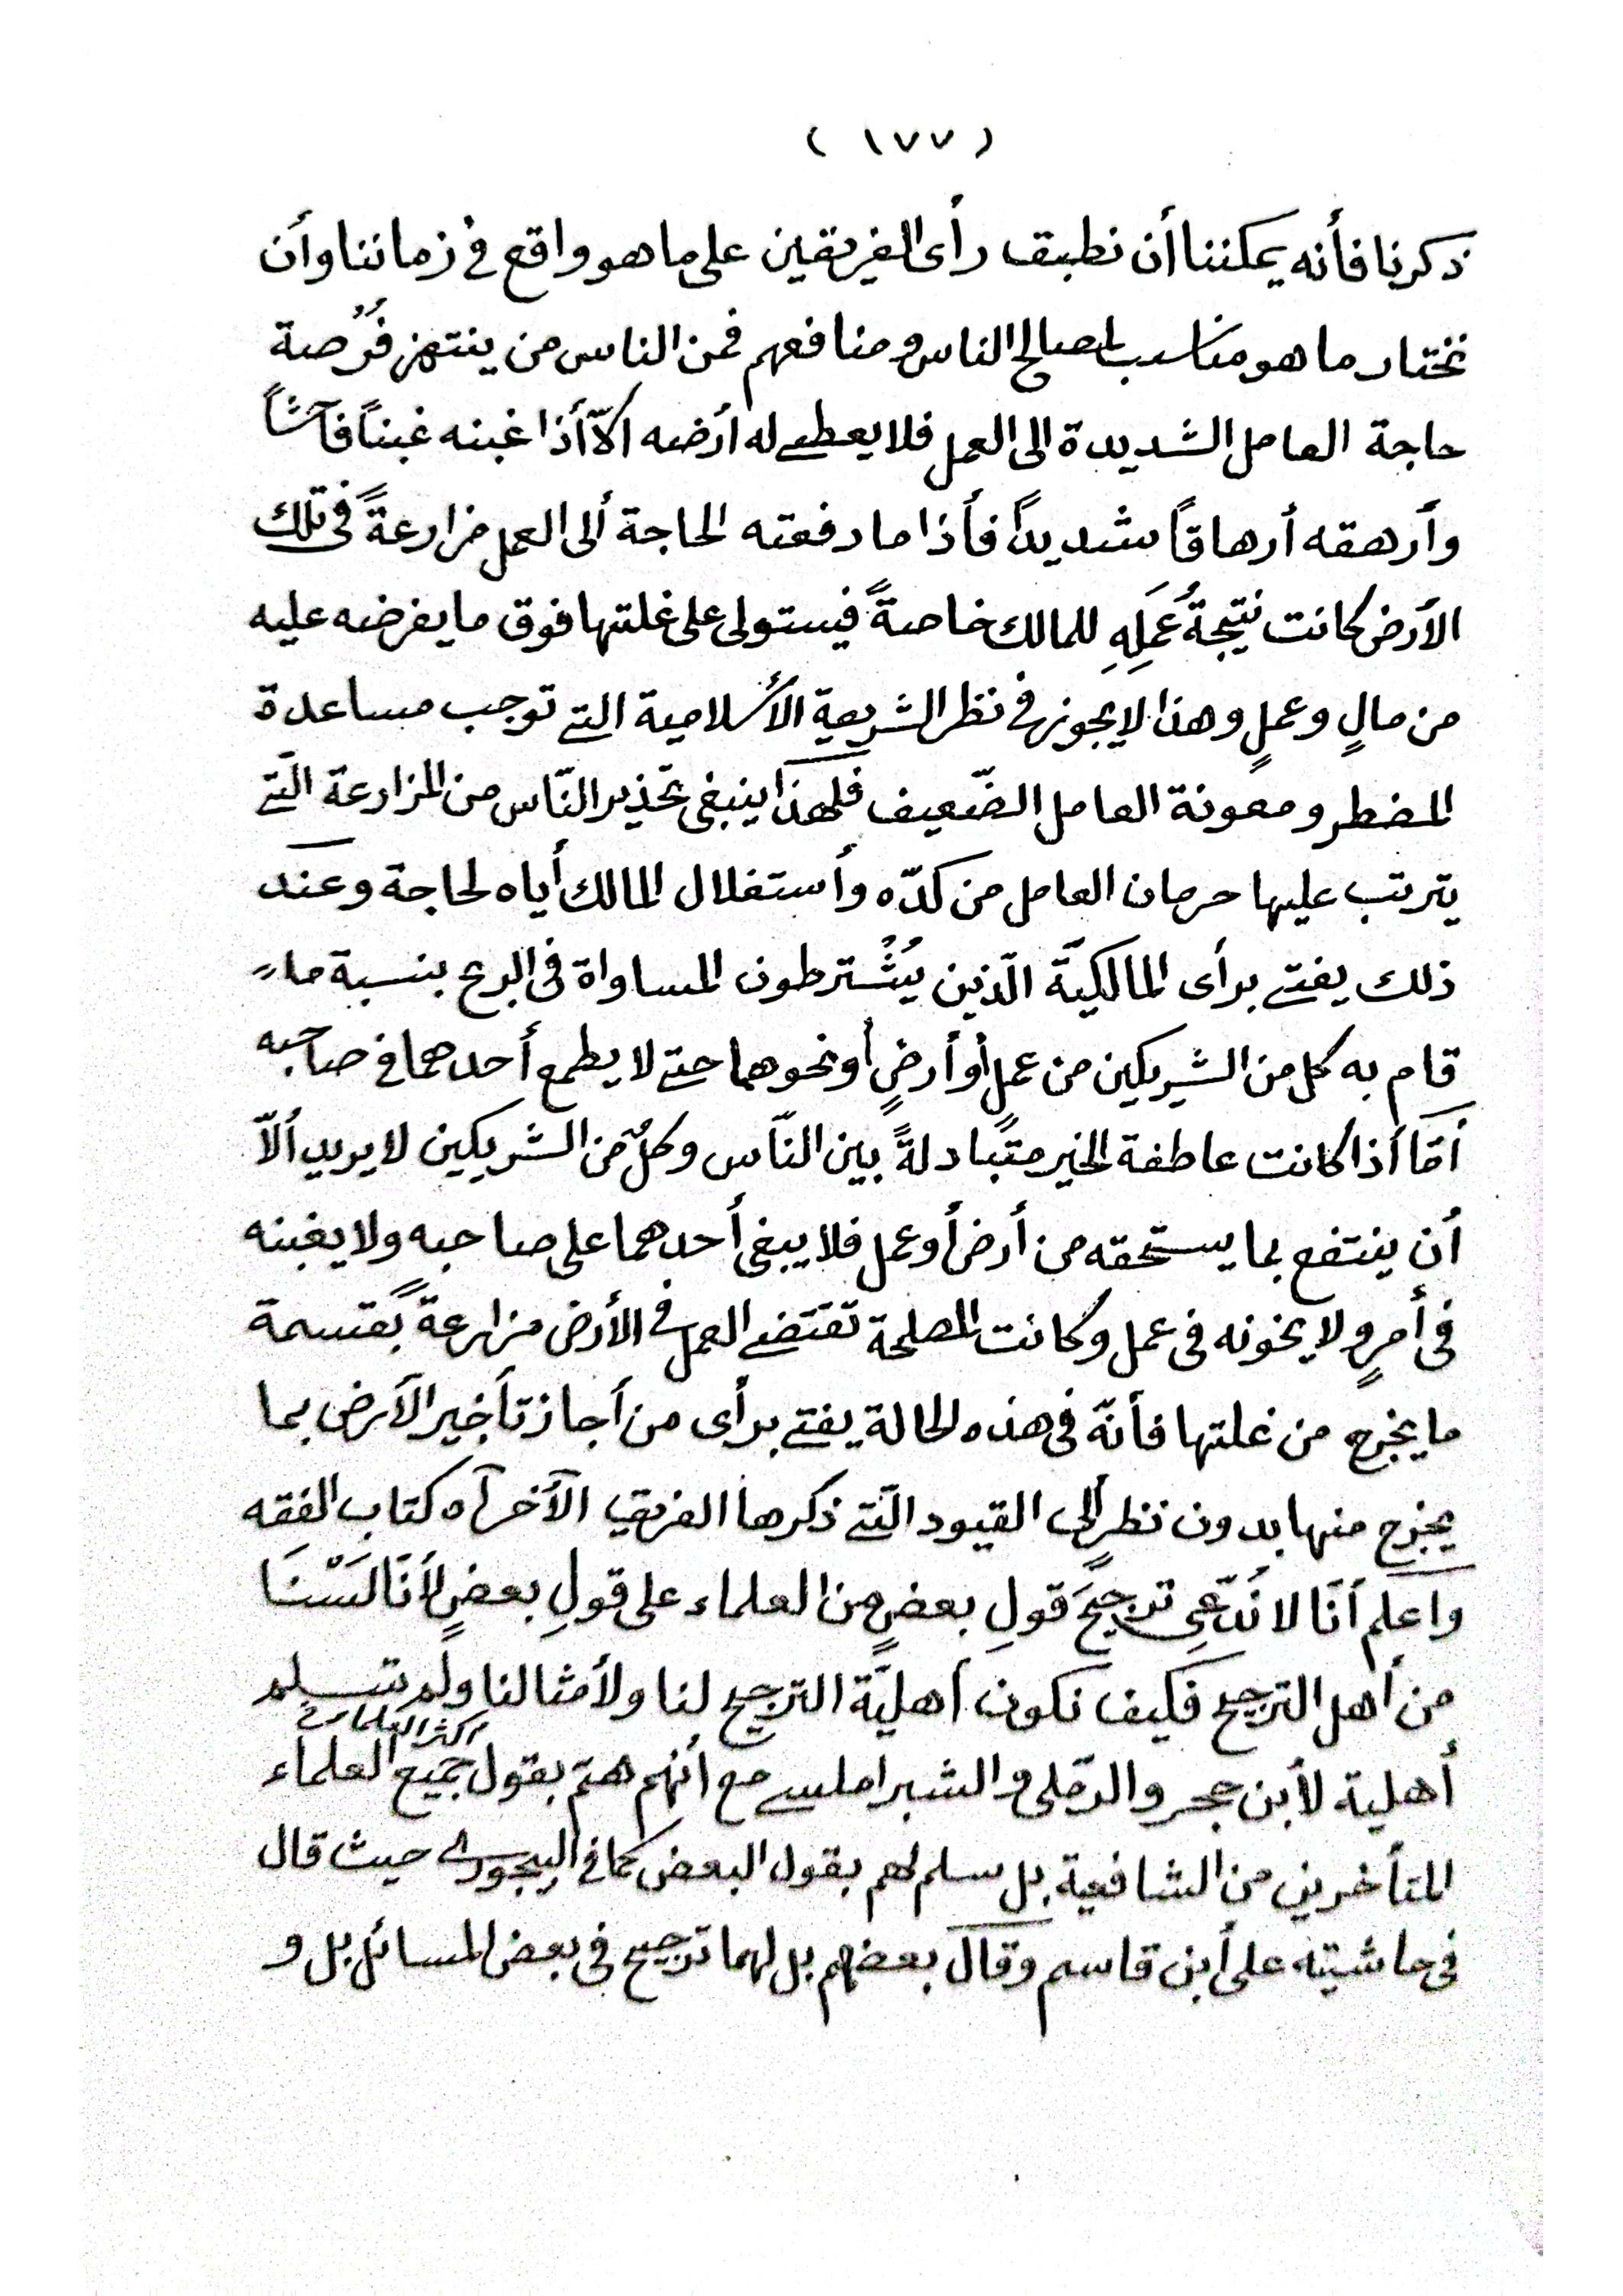 ( ١٧٧ )
ذكرنا فأنه يمكننا أن نطبق رأى الفريقين على ما هو واقع فى زماننا وأن
نختار ما هو مناسب لمصالح الناس و منافعهم فمن الناس من ينتهز فُرْصة
حاجة العامل الشديدة الى العمل فلا يعطى له أرضه الاّ أذا غبنه غبناً فآشاً
وأرهقه أرهاقاً شديداً فأذا ما دفعته الحاجة ألى العمل مزارعةً فى تلك
الأرض كانت نتيجةُ عَمَلِهِ للمالك خاصةً فيستولى على غلتها فوق ما يفرضه عليه
من مالٍ وعملٍ وهذا لا يجوز فى نظر الشريعة الأسلامية التى توجب مساعدة
المضطر و معونة العامل الضّعيف فلهذا ينبغى تحذير النّاس من المزارعة الّتى
يترتب عليها حرمان العامل من كدّه وأستغلال المالك أياه لحاجة وعند
ذلك يفتى برأى المالكيّة الّذين يُشْترطون المساواة فى الربح بنسبة ما
قام به كل من الشريكين من عملٍ أو أرضٍ أو نحوهما حتى لا يطمع أحدهما فى صاحبه
أمّا أذا كانت عاطفة الخير متبادلةً بين النّاس وكلٌ من الشريكين لا يريد ألاّ
أن ينتفع بما يستحقه من أرض أو عمل فلا يبغى أحدهما على صاحبه ولا يغبنه
فى أمرٍ ولا يخونه فى عمل وكانت المصلحة تقتضى العمل فى الأرض مزارعةً بقسمة
ما يخرج من غلتها فأنّه فى هذه الحالة يفتى برأى من أجاز تأخير الأرض بما
يخرج منها بدون نظرٍ ألى القيود الّتى ذكرها الفريق الآخر آه كتاب الفقه
وأعلم أنّا لا نُدّعى ترجيحَ قولِ بعضٍ من العلماء على قولِ بعضٍ لأنّا لَسْنَا
من أهل الترجيح فكيف نكون أهليّة الترجيح لنا ولأمثالنا ولم تسلم
أكثر العلماء
أهلية لأبن حجر والرّملى و الشبراملسى مع أنهم هم بقول جميع العلماء
المتأخرين من الشافعية بل سلم لهم بقول البعض كما فى البيجورى حيث قال
فى حاشيته على أبن قاسم وقال بعضهم بل لهما ترجيح فى بعض المسائل بل و